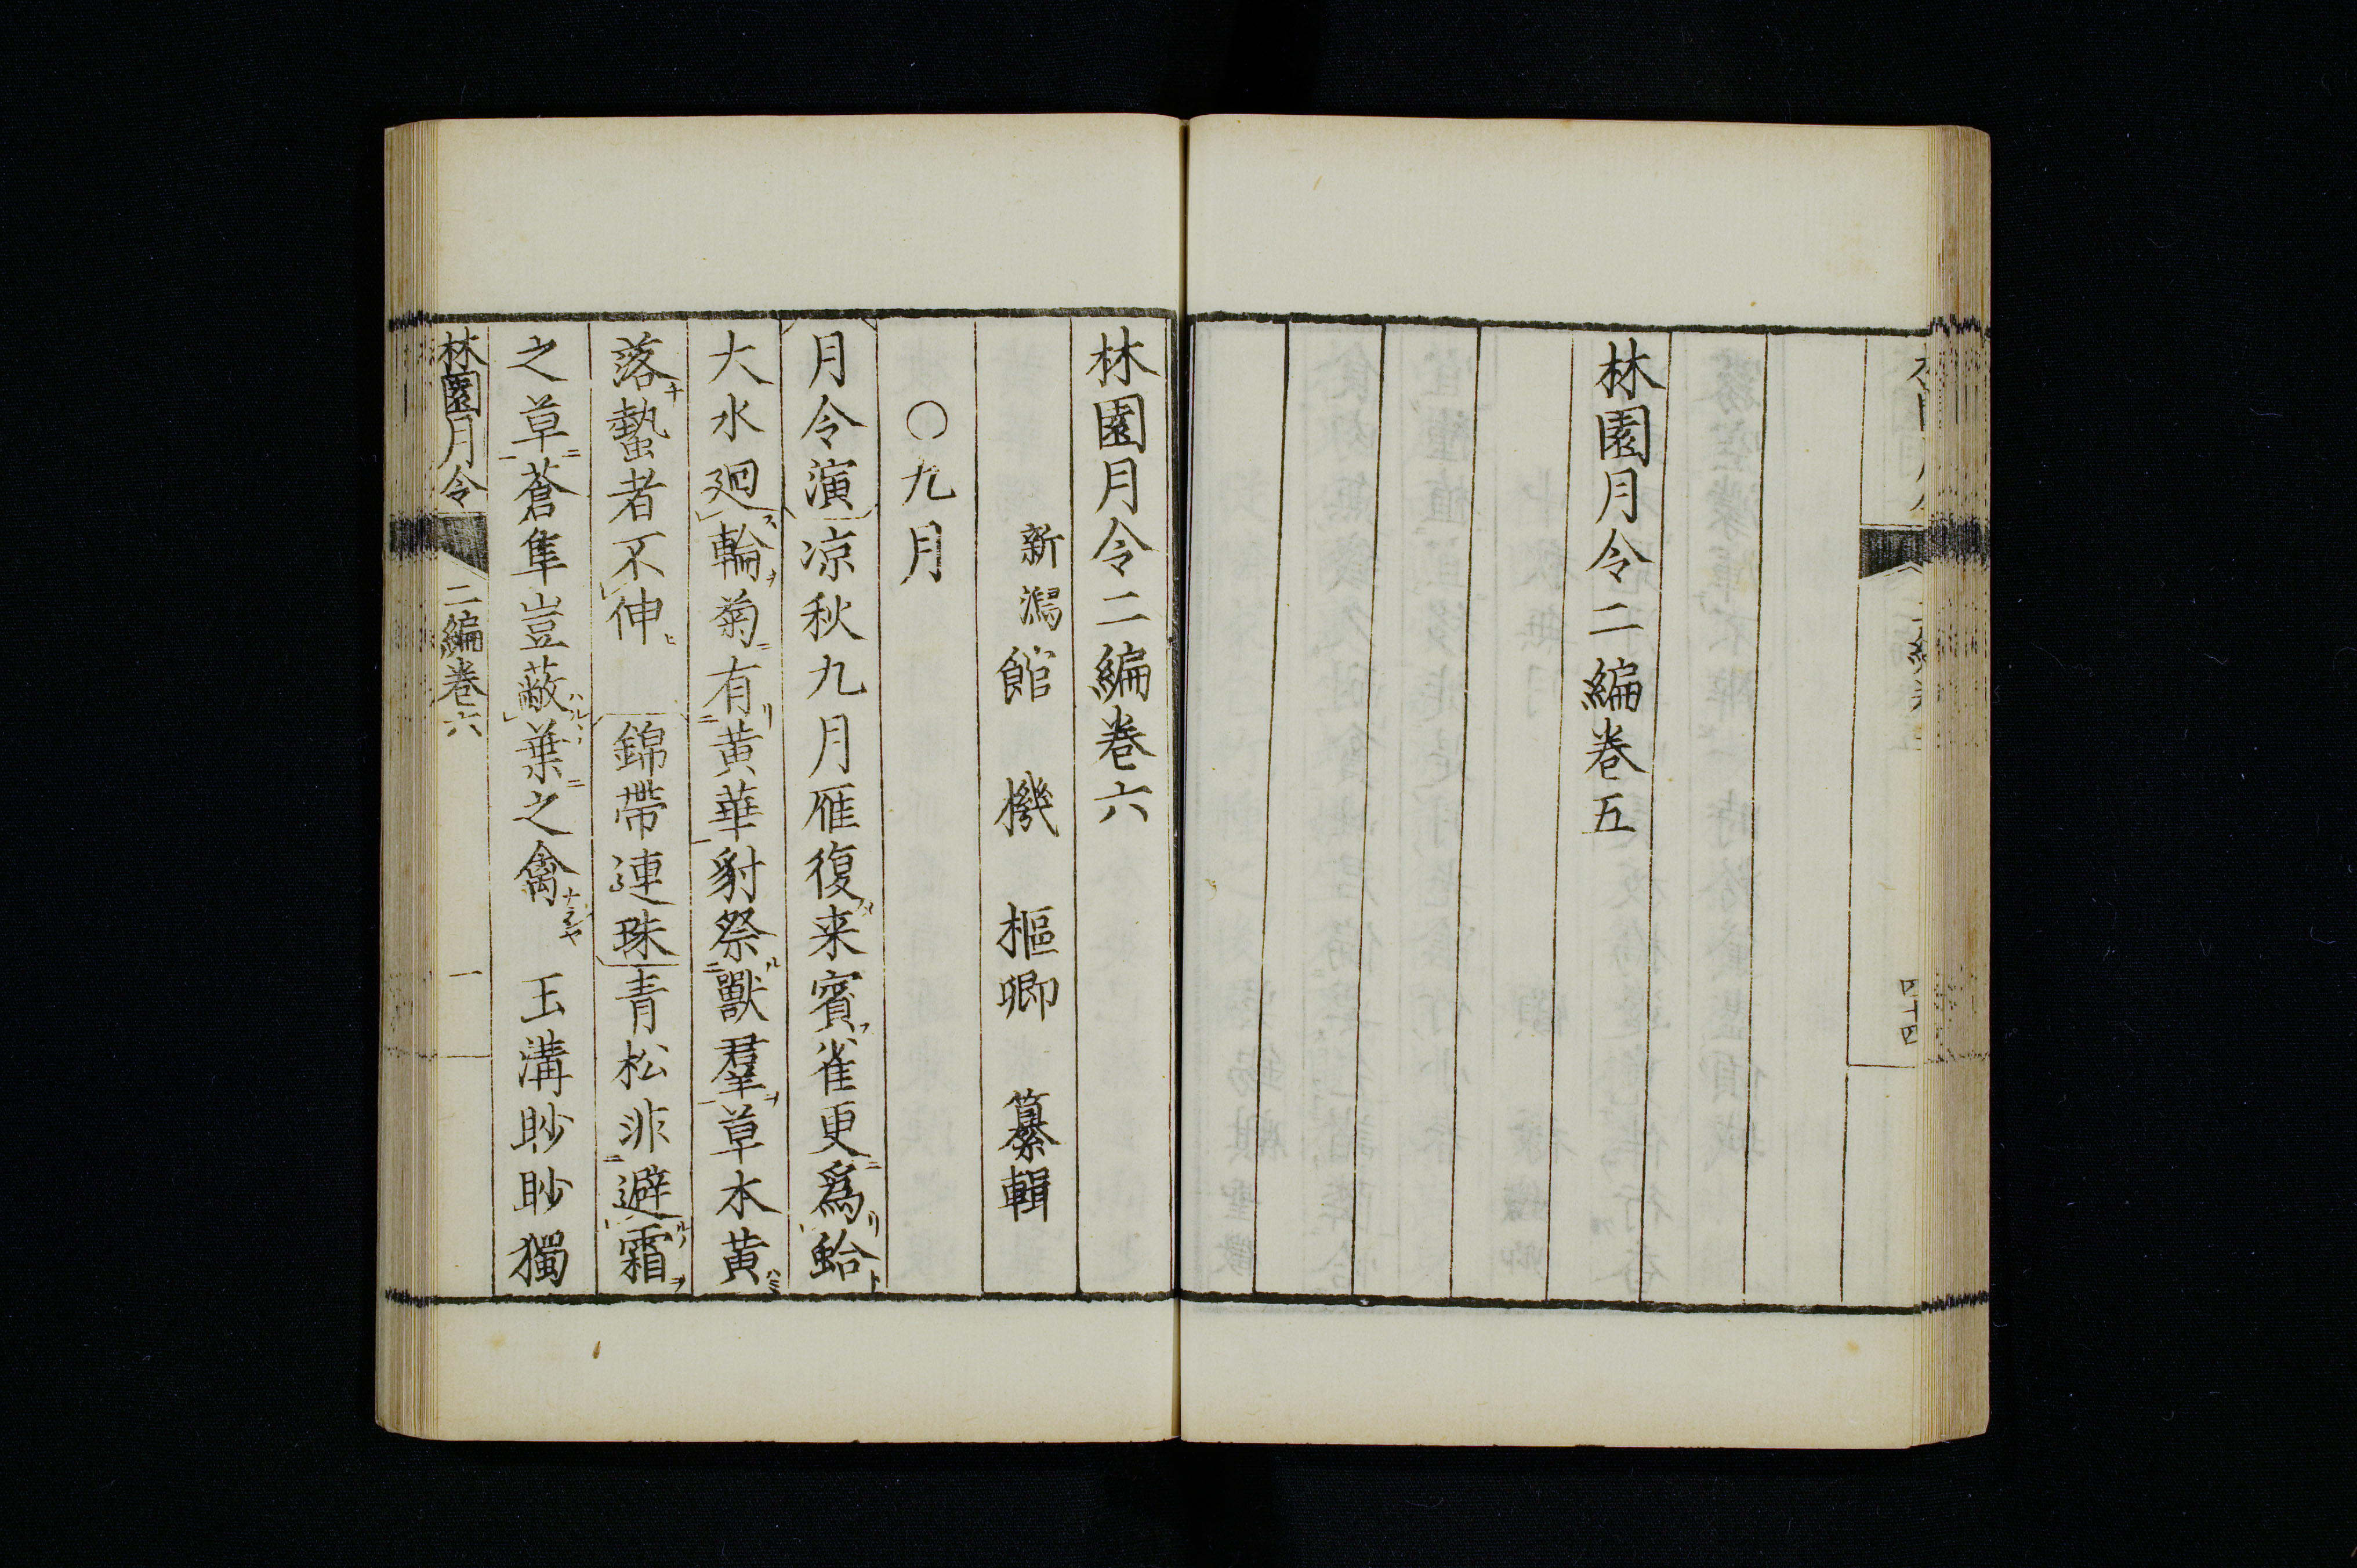 林園月令二編巻五
四十四
林園月令二編巻六
新潟 館 機 樞卿 纂輯
〇九月
月令演凉秋九月雁復来賓雀更爲蛤
大水廻輪菊有黄華豺祭獸羣草木黄
落蟄者不伸 錦帶連珠青松非避霜
之草蒼隼豈蔽葉之禽 玉溝眇眇獨
林園月令 二編巻六 一